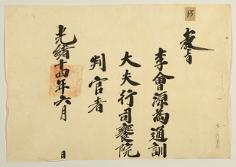 教旨
李會源為通訓
大夫行司饔院
判官者
光緒十四年六月　日